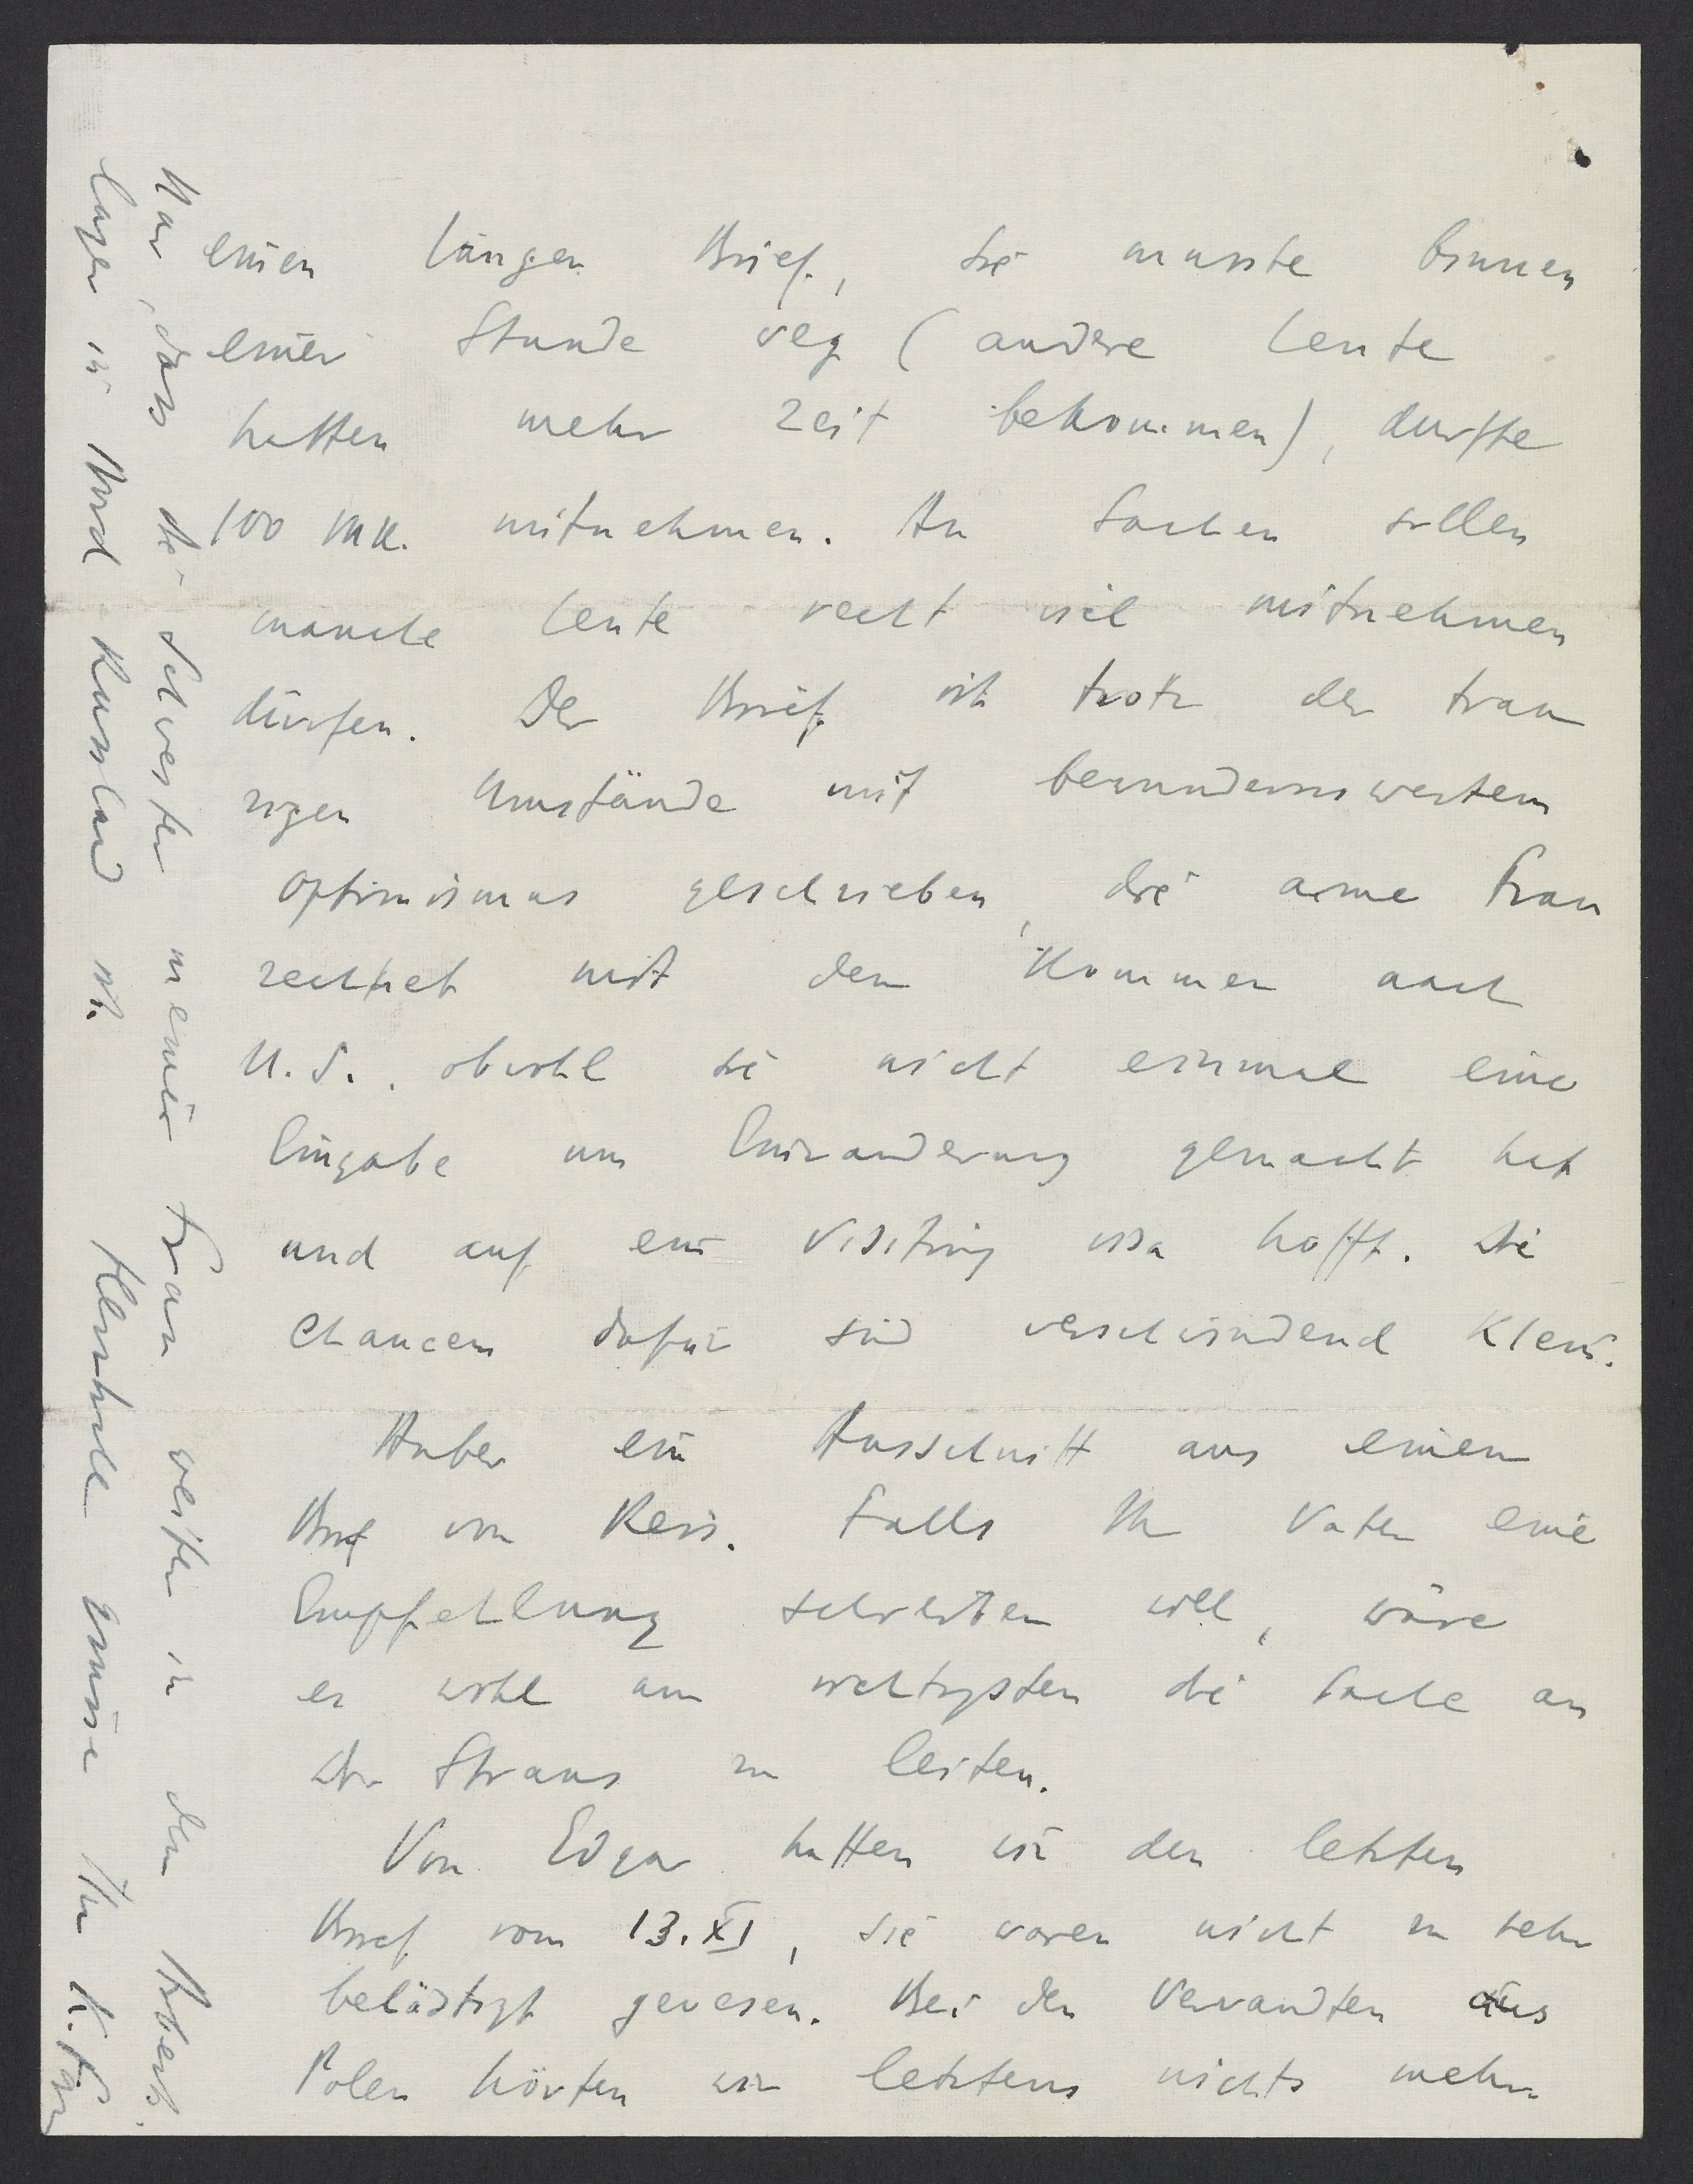 einen langen Brief, sie musste binnen
einer Stunde weg (andere Leute
hatten mehr Zeit bekommen), durfte
100 Mk. mitnehmen. An Sachen sollen
manche Leute recht viel mitnehmen
dürfen. Der Brief ist trotz der trau
rigen Umstände mit bewundernswertem
Optimismus geschrieben, die arme Frau
rechnet mit dem Kommen nach
U.S., obwohl sie nicht einmal eine
Eingabe um Einwanderung gemacht hat
und auf ein Visiting visa hofft. Die
Chancen dafür sind verschwindend klein.
Anbei ein Ausschnitt aus einem
Brief von Reis. Falls Ihr Vater eine
Empfehlung schreiben will, wäre
es wohl am wichtigsten die Sache an
Dr Straus zu leiten.
Von Edgar hatten wir den letzten
Brief vom 13. XI, sie waren nicht zu sehr
belästigt gewesen. Bei den Verwandten aus
Polen hörten wir letztens nichts mehr
nur, dass die Schwester meiner Frau weiter in den
lager in Nord Russland ist. Herzliche Grüsse Ihr K.